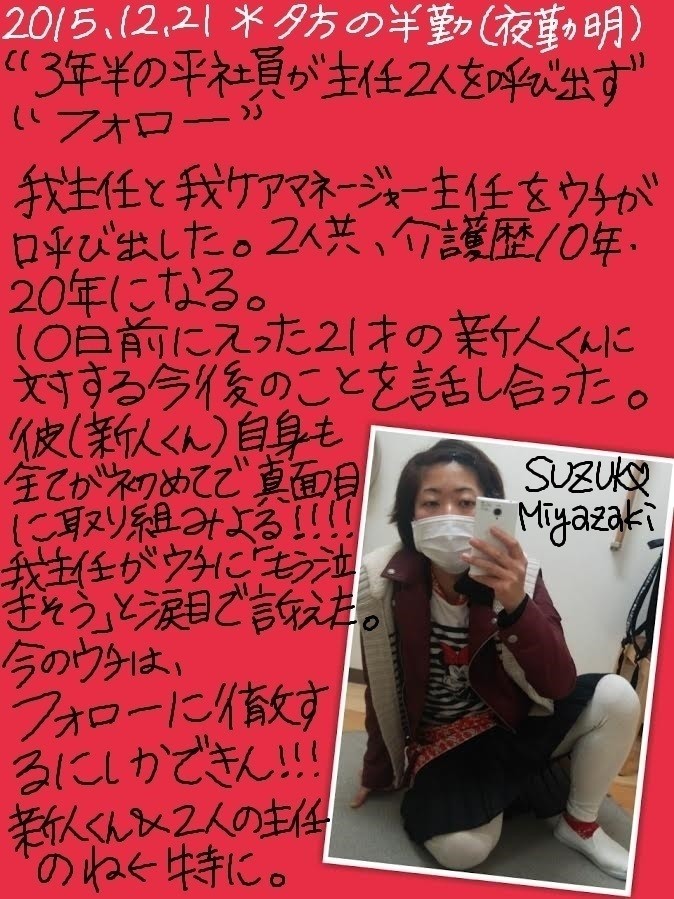 2015.12.21*夕方の半勤(夜勤明)
“3年半の平社員が主任2人を呼び出す”
“フォロー”
我主任と我ケアマネージャー主任をウチが
呼び出した。2人共、介護歴10年・
20年になる。
10日前に入った21才の新人くんに
対する今後のことを話し合った。
彼(新人くん)自身も
全てが初めてで真面目
に取り組みよる!!!!
我主任がウチに「もう泣
きそう」と涙目で訴えた。
今のウチは、
フォローに徹す
るにしかできん!!!
新人くん&2人の主任
のね←特に。
SUZUK♡
Miyazaki